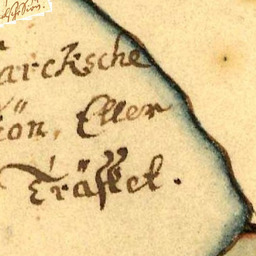 arcksche
iön, Eller
Träsket.